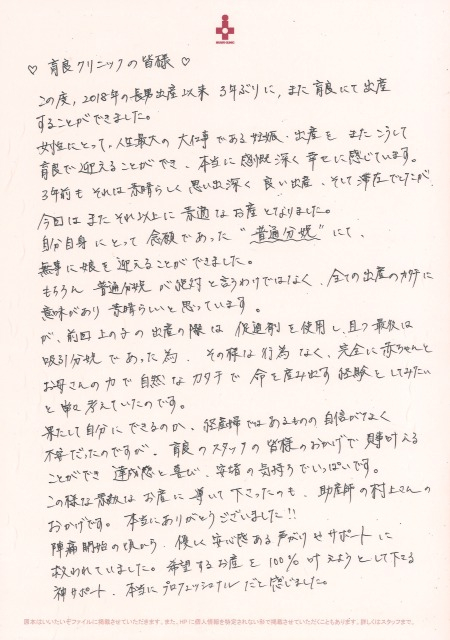 ♡ 育良クリニックの皆様 ♡
この度、2018年の長男出産以来 3年ぶりに、また育良にて出産
することができました。
女性にとって、人生最大の大仕事である妊娠・出産を またこうして
育良で迎えることができ、本当に感慨深く幸せに感じています。
3年前も それは素晴らしく 思い出深く 良い出産、そして滞在でしたが
今回は またそれ以上に 素適な お産となりました。
自分自身にとって 念願であった "普通分娩" にて、
無事に娘を迎えることができました。
もちろん 普通分娩が絶対と言うわけではなく、全ての出産のカタチに
意味があり 素晴らしいと思っています。
が、前回 上の子の出産の際は 促進剤を使用し、且つ最後は
吸引分娩であった為、その様な行為なく、完全に赤ちゃんと
お母さんの力で自然なカタチで 命を産み出す経験をしてみたい
と 考えていたのです。
果たして自分にできるのか、経産婦ではあるものの自信がなく
不安だったのですが、育良のスタッフの皆様のおかげで見事叶える
ことができ 達成感と喜び、安堵の気持ちでいっぱいです。
この様な素敵な お産に 導いて下さったのも、助産師の村上さんの
おかげです。本当にありがとうございました!!
陣痛開始の頃から、優しく安心感ある声がけやサポートに
救われていました。希望するお産を 100% 叶えようとして下さる
神サポート、本当にプロフェッショナルだと感じました。
原本はいいたいぞファイルに掲載させていただきます。また、HPに個人情報を特定されない形で掲載させていただくこともあります。詳しくはスタッフまで。